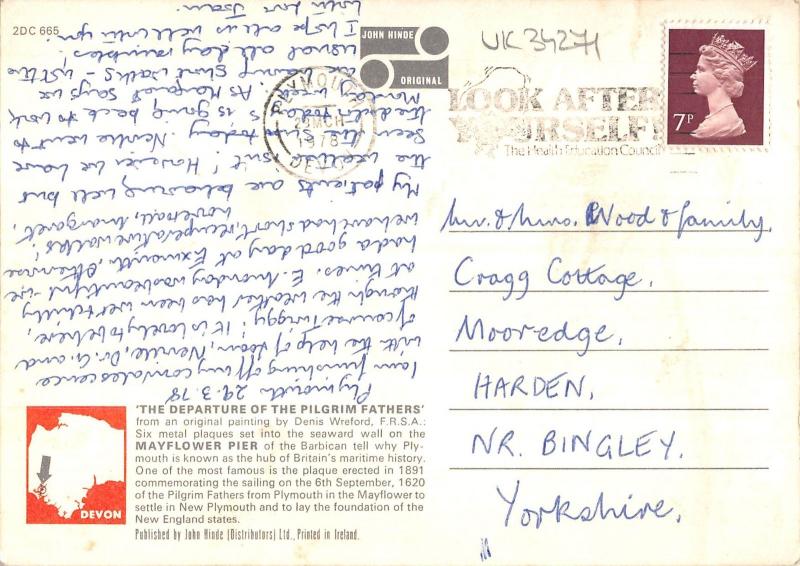 2DC 665
JOHN HINDE
ORIGINAL
UK 34271
PLYMOUTH
29 MCH
1978
DEVON
LOOK AFTER
YOURSELF!
The Health Education Council
7P
Mr. & Mrs. Wood & family,
Cragg Cottage,
Mooredge,
HARDEN,
NR. BINGLEY.
Yorkshire,
Plymouth 29.3.78
I am finishing off my convalescence
with the help of Joan, Neville, Dr. G. and
of course Twiggy! It is lovely to be here,
though the weather has been wet & chilly
at times. E. Monday was beautiful - we
had a good day at Exmouth, otherwise
we have had short, recuperative walks!
Love to all, Margaret.
My patients are behaving well but
the weather isn't! However we have
seen the sun today. Neville went to
the doctor today & is going back to work
Monday. As Margaret says we
are having short walks - not the
usual all day rambles!
I hope all is well with you
with love Joan.
'THE DEPARTURE OF THE PILGRIM FATHERS'
from an original painting by Denis Wreford, F.R.S.A.:
Six metal plaques set into the seaward wall on the
MAYFLOWER PIER of the Barbican tell why Ply-
mouth is known as the hub of Britain's maritime history.
One of the most famous is the plaque erected in 1891
commemorating the sailing on the 6th September, 1620
of the Pilgrim Fathers from Plymouth in the Mayflower to
settle in New Plymouth and to lay the foundation of the
New England states.
Published by John Hinde (Distributors) Ltd., Printed in Ireland.
DEVON